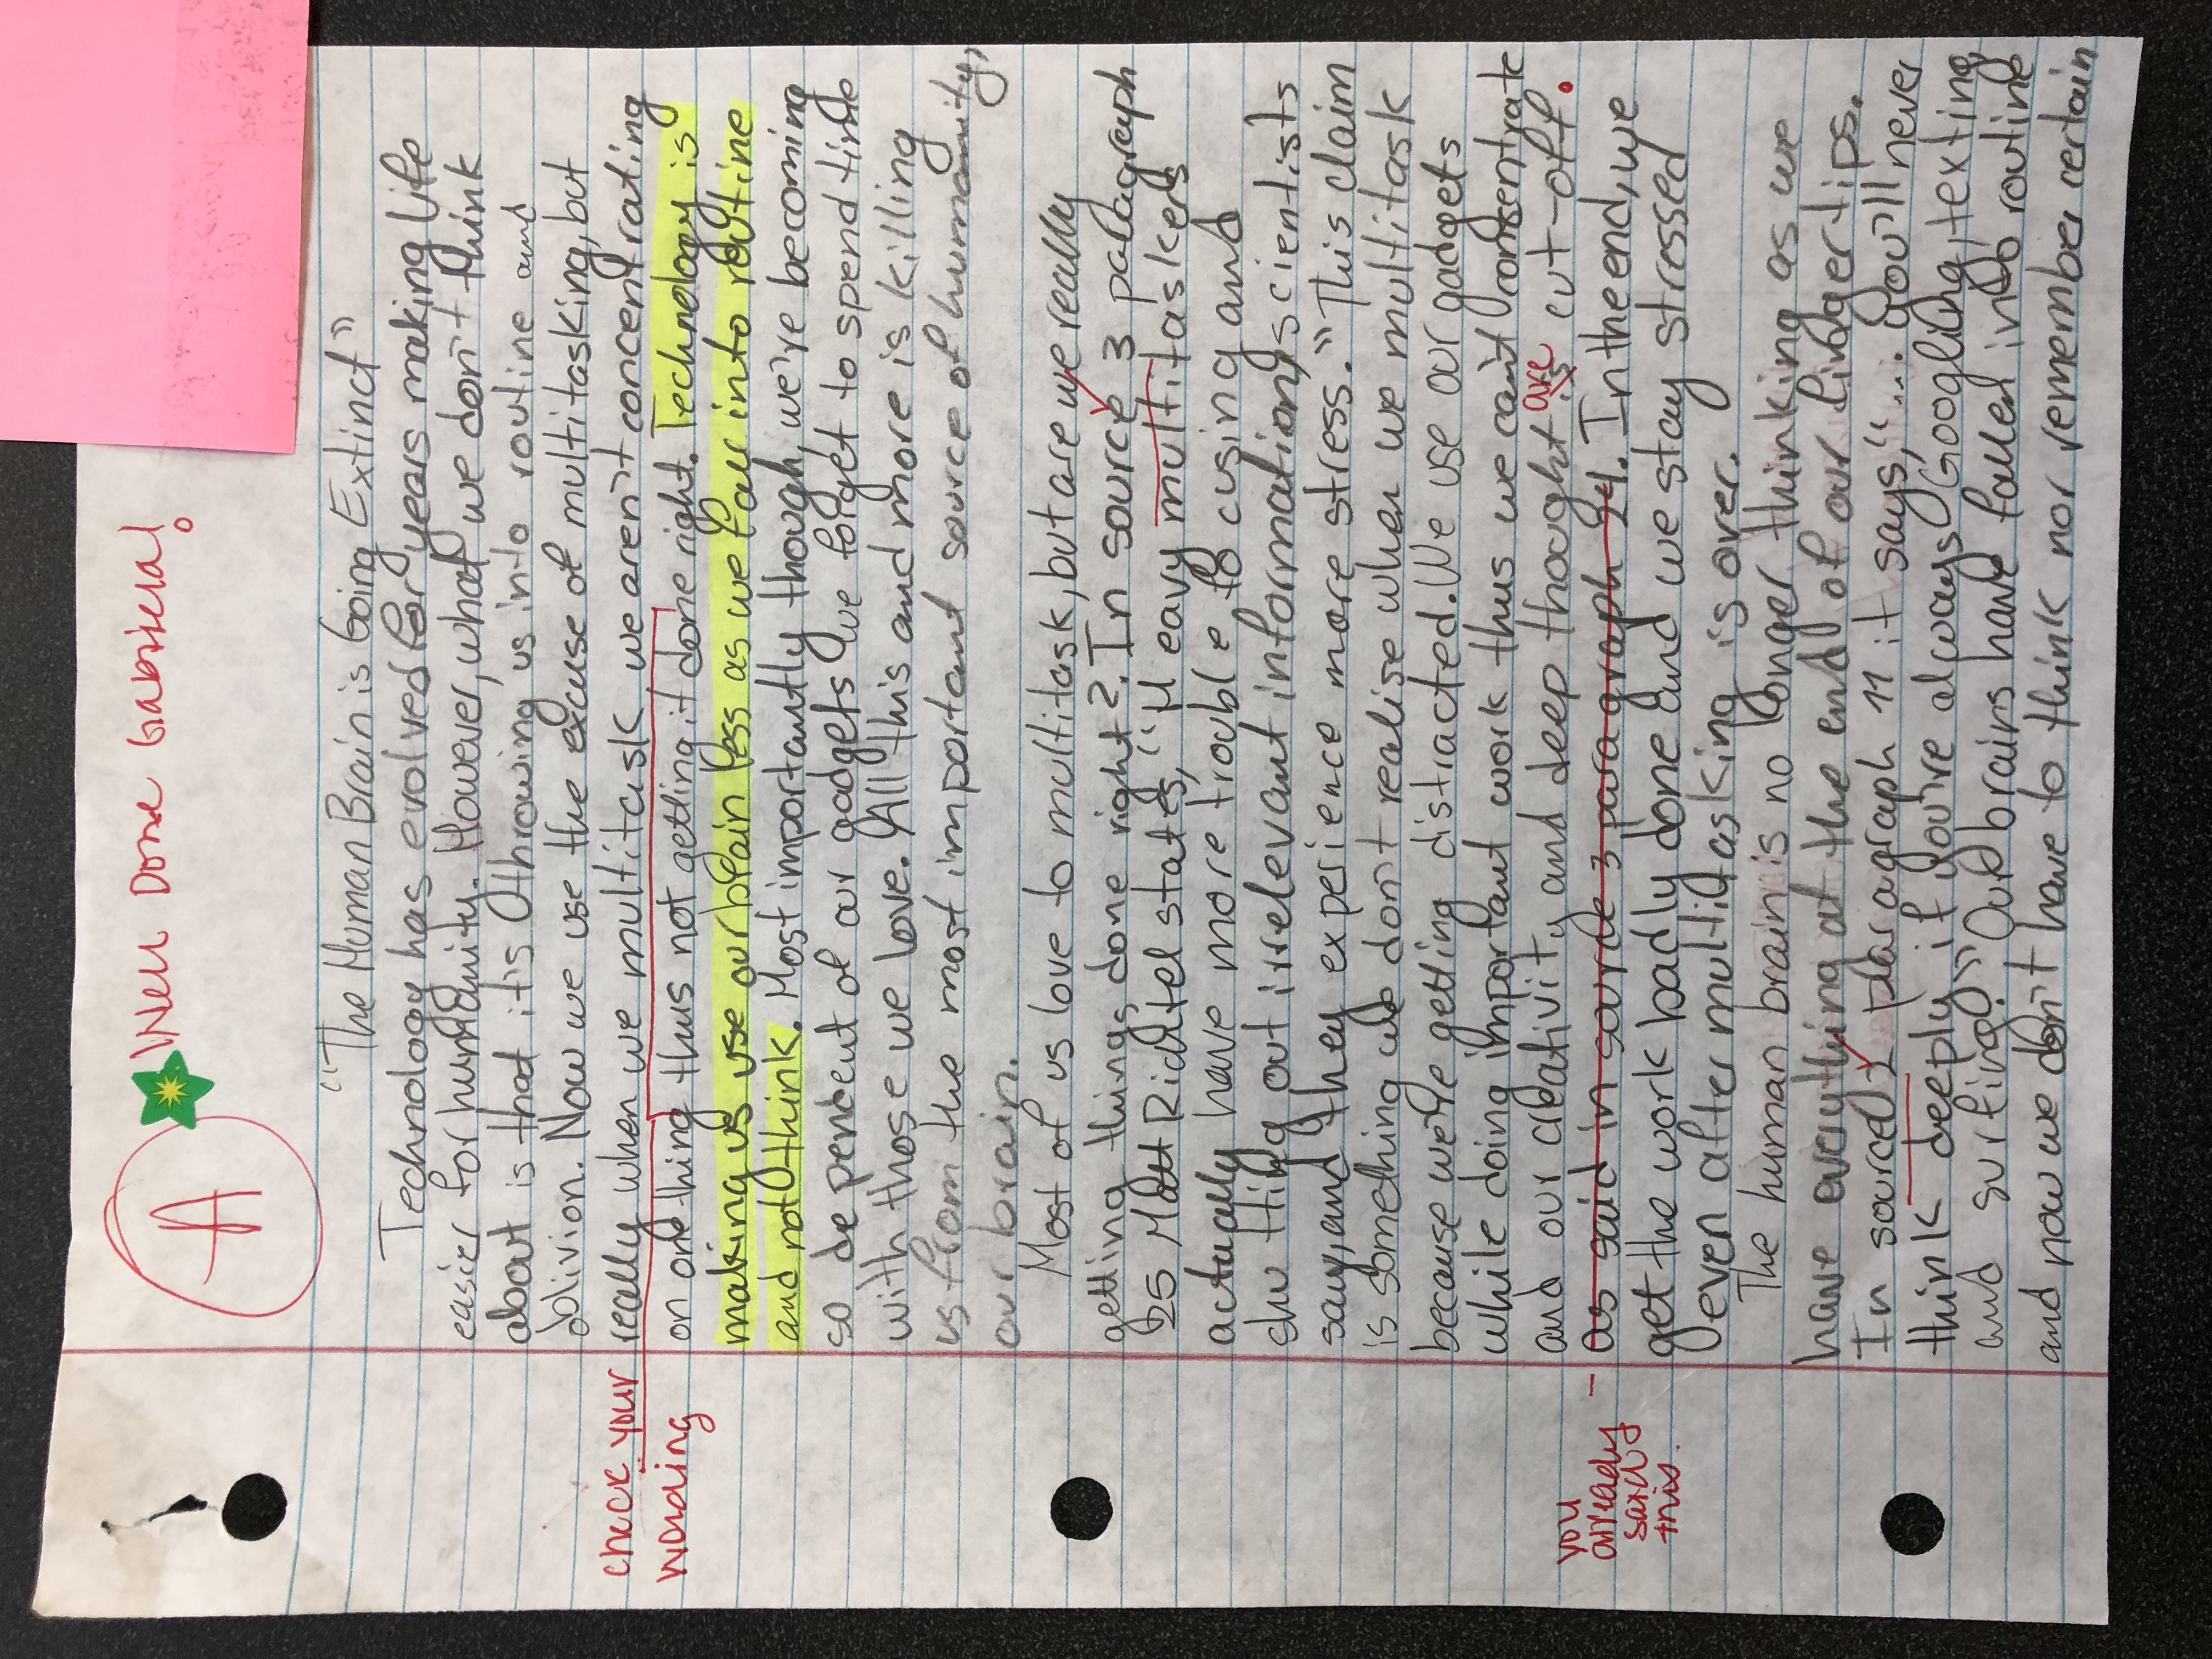 A
Well Done Gabriela!
"The Human Brain is Going Extinct"
Technology has evolved for years making life
easier for humanity. However, what we don't think
about is that it's throwing us into routine and
oblivion. Now we use the excuse of multitasking, but
check your
wording
really when we multitask we aren't concentrating
on one thing thus not getting it done right. Technology is
making us use our brain less as we fall into routine
and not think. Most importantly though, we're becoming
so dependent of our gadgets we forget to spend time
with those we love. All this and more is killing
us from the most important source of humanity,
our brain.
Most of us love to multitask, but are we really
getting things done right?. In source 3 paragraph
25 Matt Richtel states, "Heavy multitaskers
actually have more trouble focusing and
shutting out irrelevant information, scientists
say, and they experience more stress." This claim
is something we don't realise when we multitask
because we're getting distracted. We use our gadgets
while doing important work thus we can't consentrate
and our creativity and deep thought is are cut-off.
you
already
said
this.
- as said in source 3 paragraph 24. In the end, we
get the work badly done and we stay stressed
even after multitasking is over.
The human brain is no longer thinking as we
have everything at the end of our fingertips.
In source 1 paragraph 11 it says, "... you'll never
think deeply if you're always Googling, texting
and surfing." Our brains have fallen into routine
and now we don't have to think nor remember certain